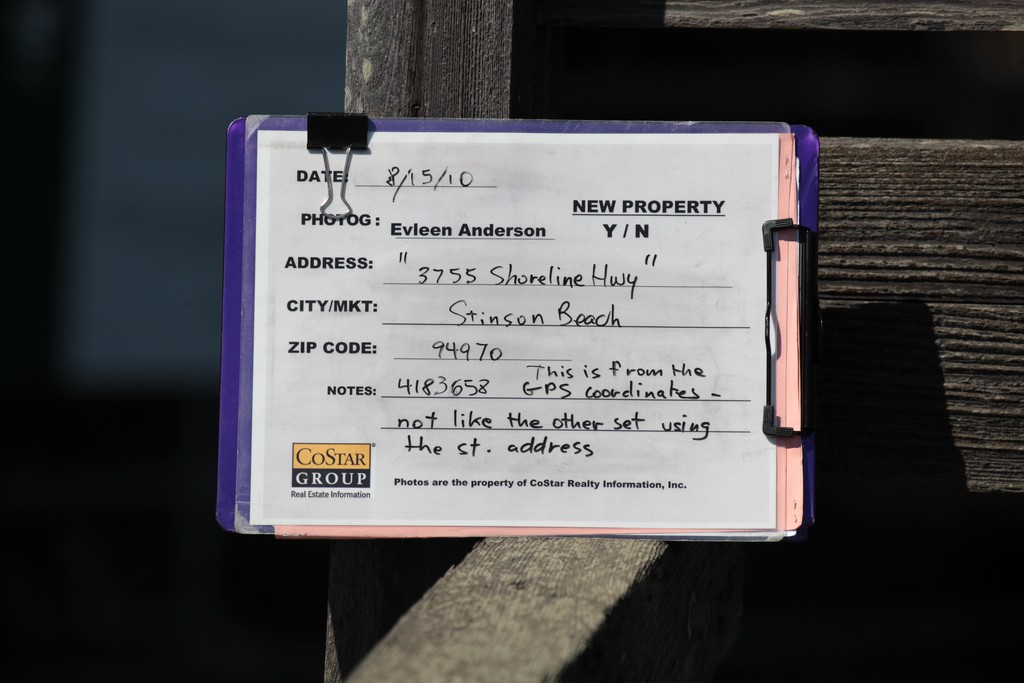 DATE: 8/15/10
NEW PROPERTY
PHOTOG: Evleen Anderson Y / N
ADDRESS: "3755 Shoreline Hwy"
CITY/MKT: Stinson Beach
ZIP CODE: 94970
This is from the
NOTES: 4183658 GPS coordinates -
not like the other set using
the st. address
COSTAR
GROUP
Real Estate Information
Photos are the property of CoStar Realty Information, Inc.